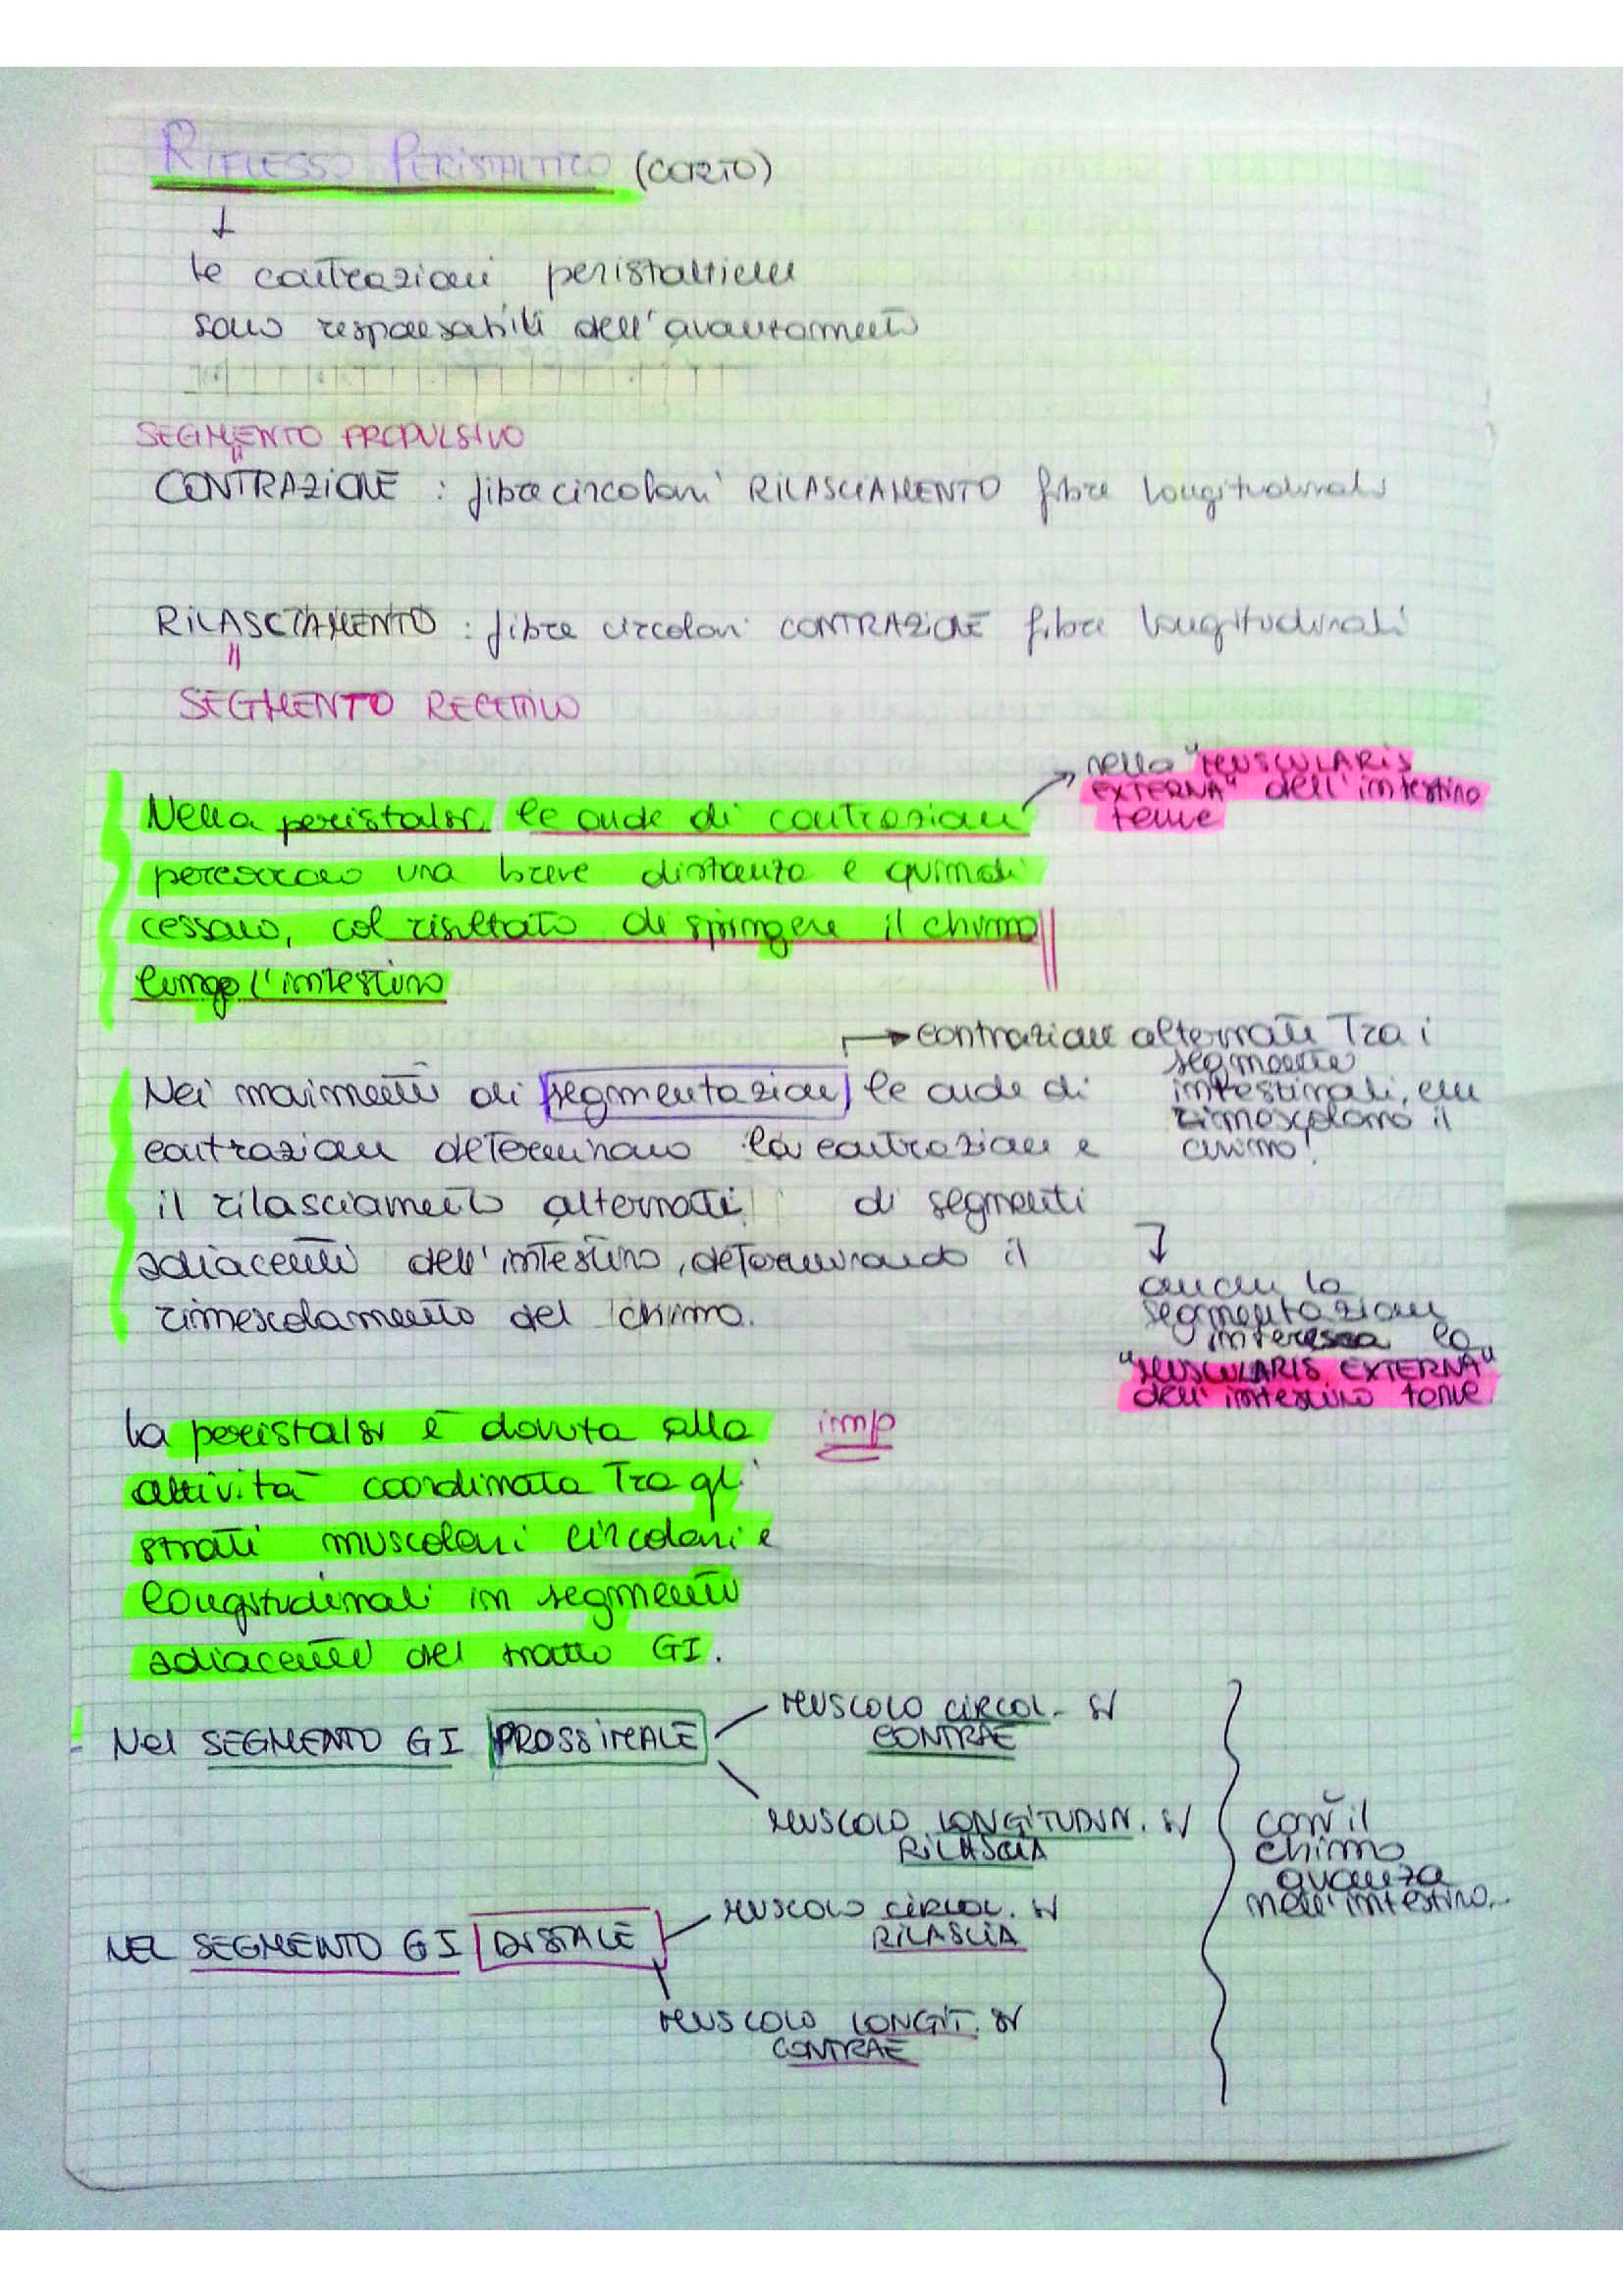 RIFLESSO PERISTALTICO (CORTO)
↓
le contrazioni peristaltiche
sono responsabili dell'avanzamento
SEGMENTO PROPULSIVO
CONTRAZIONE : fibre circolari RILASCIAMENTO fibre longitudinali
RILASCIAMENTO : fibre circolari CONTRAZIONE fibre longitudinali
SEGMENTO RECETTIVO
nella "MUSCULARIS
EXTERNA" dell'intestino
tenue
Nella peristalsi le onde di contrazioni
percorrono una breve distanza e quindi
cessano, col risultato di spingere il chimo
lungo l'intestino
→ contrazioni alternate tra i
segmenti
intestinali, che
rimescolano il
chimo!
Nei movimenti di segmentazione le onde di
contrazione determinano la contrazione e
il rilasciamento alternati di segmenti
adiacenti dell'intestino, determinando il
rimescolamento del chimo.
↓
anche la
segmentazione
interessa la
"MUSCULARIS EXTERNA"
dell'intestino tenue
La peristalsi è dovuta alla imp
attività coordinata tra gli
strati muscolari circolari e
longitudinali in segmenti
adiacenti del tratto GI.
Nel SEGMENTO GI PROSSIMALE
MUSCOLO CIRCOL. si
CONTRAE
MUSCOLO LONGITUDIN. si
RILASCIA
NEL SEGMENTO GI DISTALE
MUSCOLO CIRCOL. si
RILASCIA
MUSCOLO LONGIT. si
CONTRAE
così il
chimo
avanza
nell'intestino..